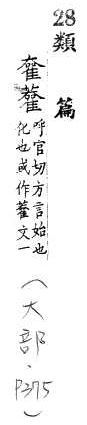 28 類篇
呼官切方言始也
化也或作 文一
(大部·P375)